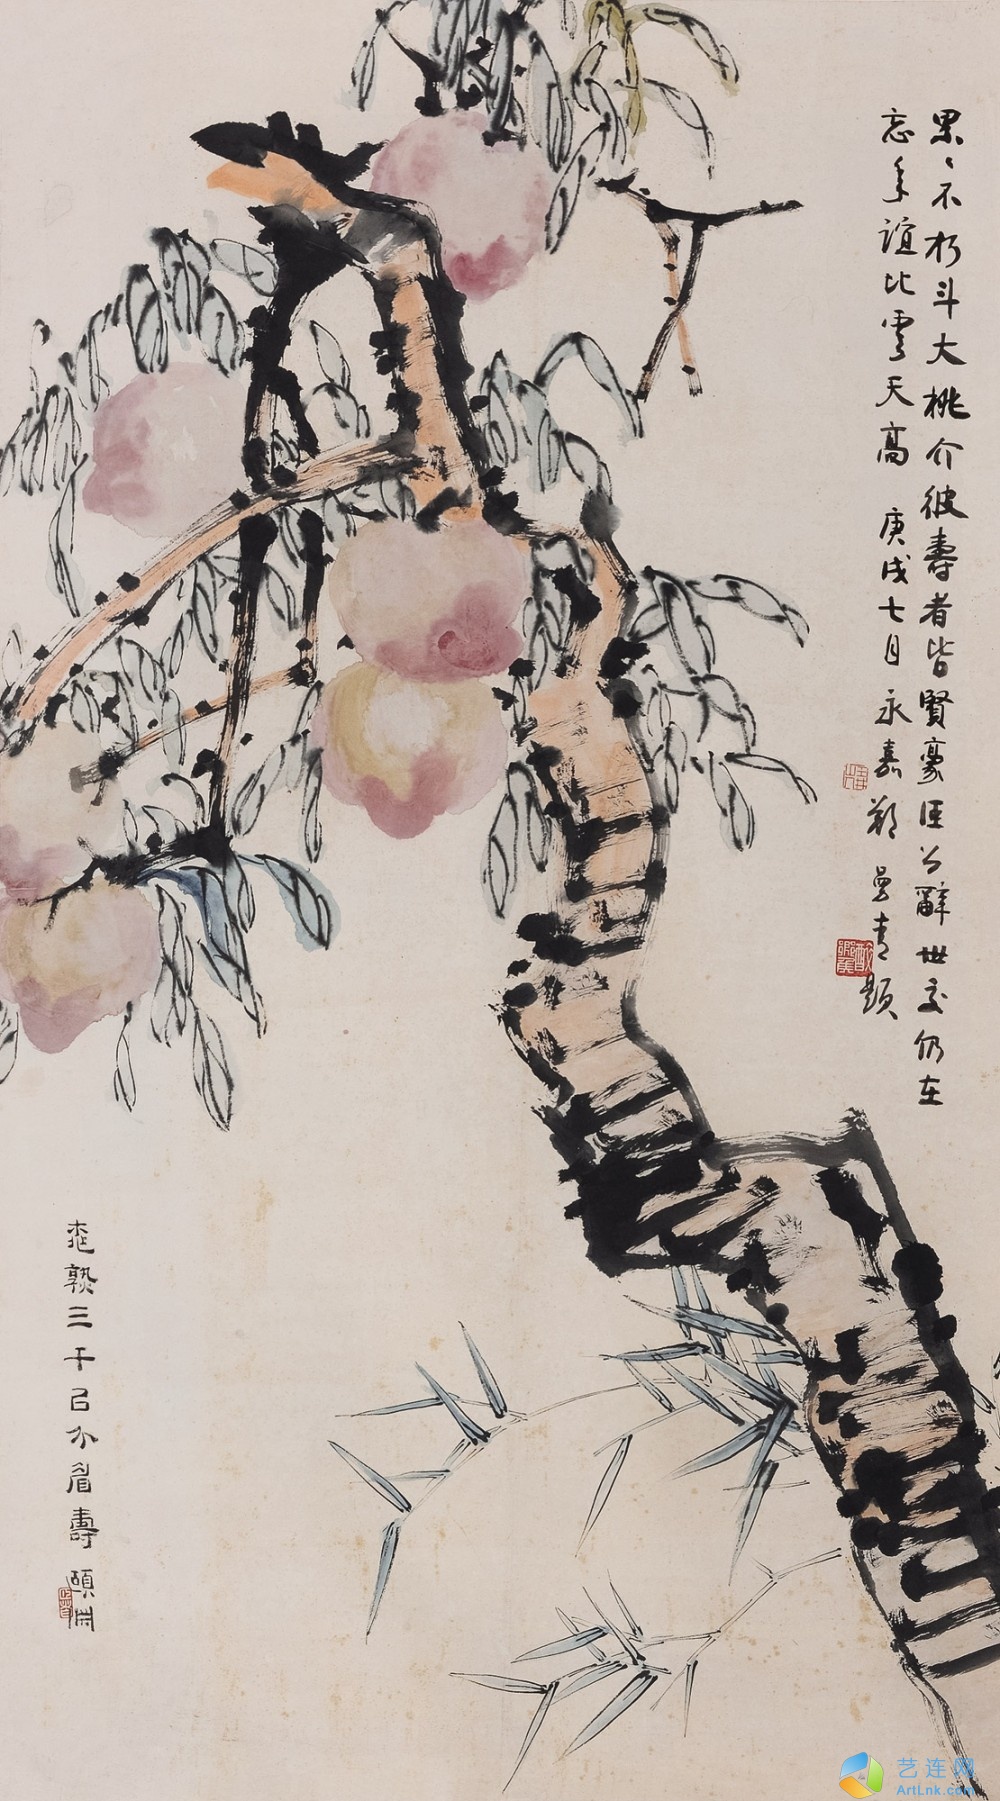 累々不朽斗大桃介彼壽者皆賢豪匡公辭世交仍在
忘年誼比雲天高 庚戌七月永嘉鄭曼青題
桃熟三千已介眉壽 頤淵
艺连网
ArtLnk.com